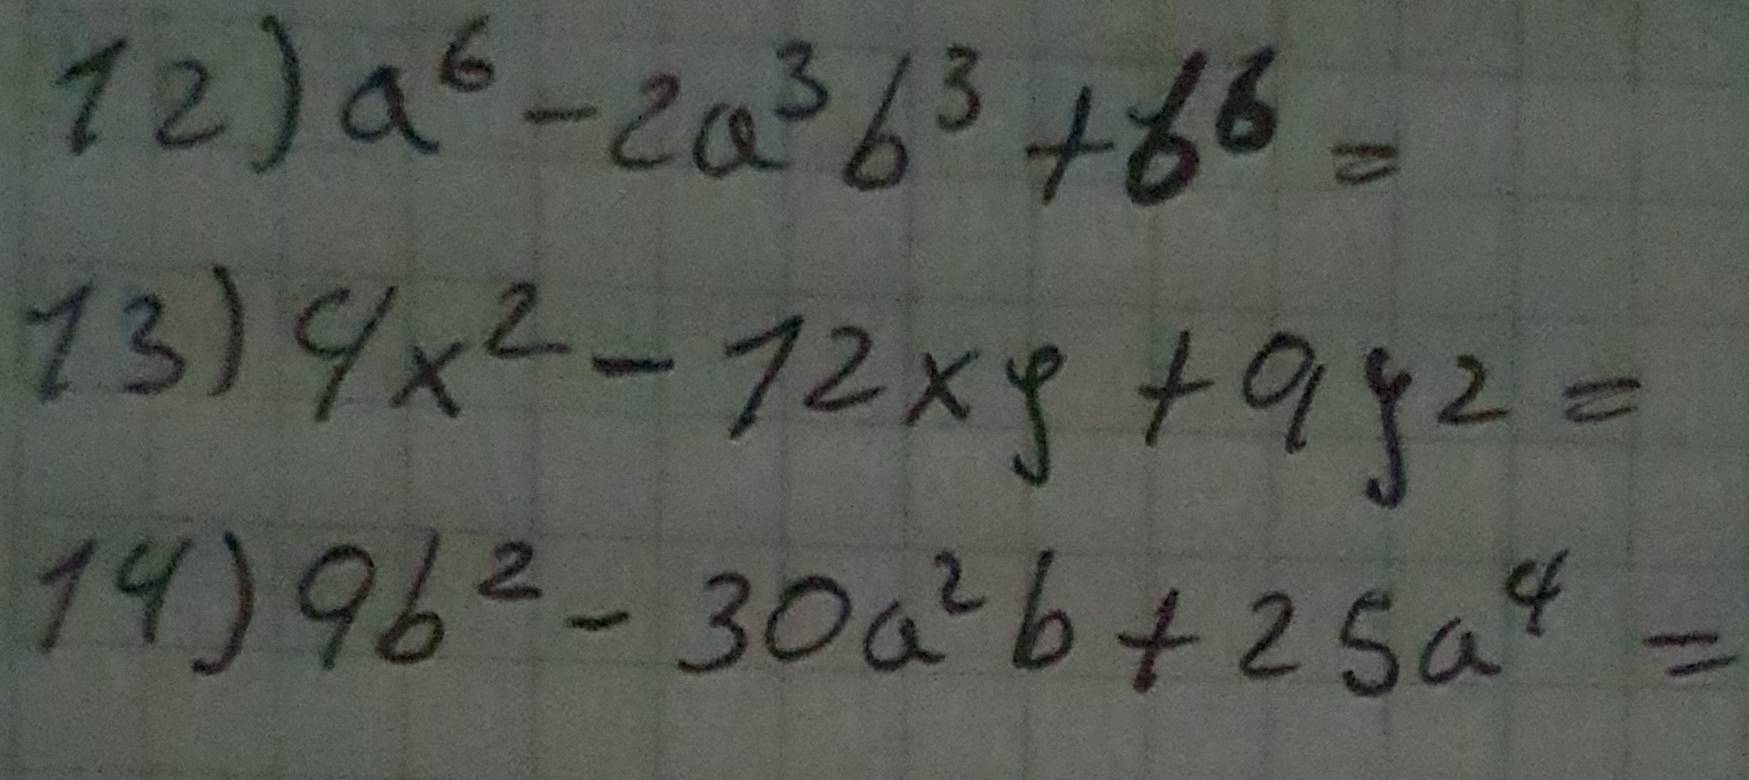 12) a⁶ - 2a³b³ + b⁶ =
13) 4x² - 12xy + 9y2 =
14) 9b² - 30a²b + 25a⁴ =